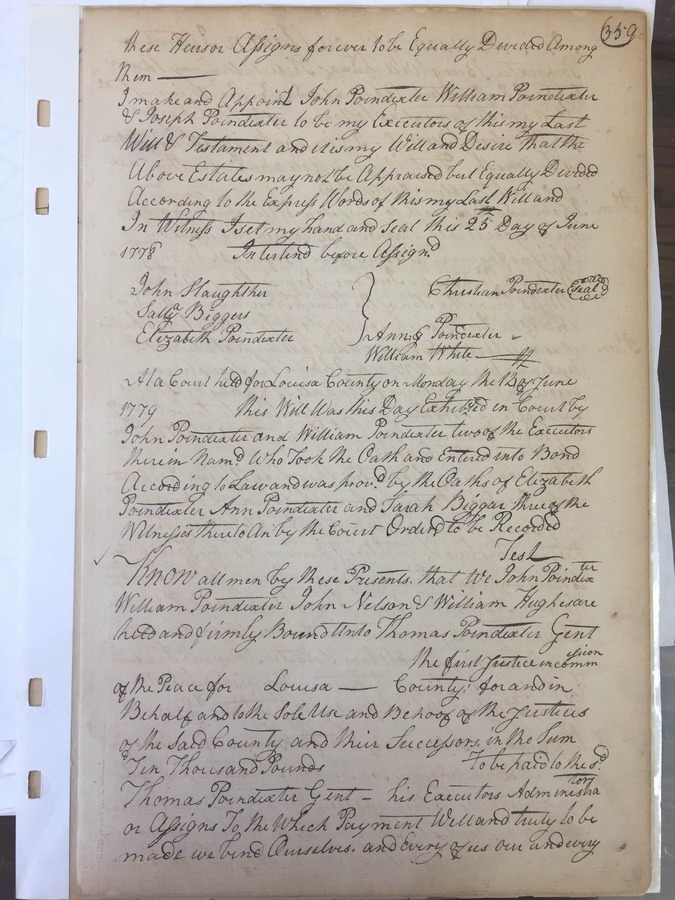 359
these Heirs or Assigns forever to be Equally Divided Among
them
I make and Appoint John Poindexter William Poindexter
& Joseph Poindexter to be my Executors of this my Last
Will & Testament and it is my Will and Desire that the
Above Estates may not be Appraised but Equally Divided
According to the Express Words of this my Last Will and
In Witness I set my hand and seal this 25 Day of June
1778 Interlind before Assign.d
John Slaughther
Christian Poindexter Seal
Sally Biggers
Elizabeth Poindexter
Ann Poindexter
William White
At a Court held for Louisa County on Monday the of June
1779 this Will Was this Day Exhibited in Court by
John Poindexter and William Poindexter two of the Executors
therein Nam.d Who Took the Oath and Entered into Bond
According to Law and was prov.d by the Oaths of Elizabeth
Poindexter Ann Poindexter and Sarah Biggar three of the
Witnesses thereto An by the Court Orderd to be Recorded
Test
Know all men by these Presents. that We John Poindexter
William Poindexter John Nelson & William Hughes are
held and firmly Bound Unto Thomas Poindexter Gent
the first Justice in commission
of the Peace for Louisa County; for and in
Behalf and to the Sole Use and Behoof of the Justices
of the Said County and their Successors. in the Sum
Ten Thousand Pounds To be paid to the s.d
Thomas Poindexter Gent his Executors Administrators
or Assigns To the Which Payment Well and truly to be
made we bind Ourselves. and Every of us our and every